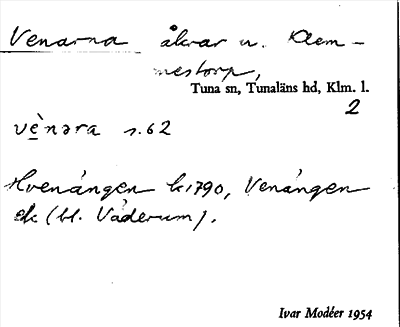 Venarna åkrar u. Klem-
mestorp,
Tuna sn, Tunaläns hd, Klm. l.
2
vè̱nəra s. 62
Hvenängen k 1790, Venängen
ek (bl. Våderum).
Ivar Modéer 1954